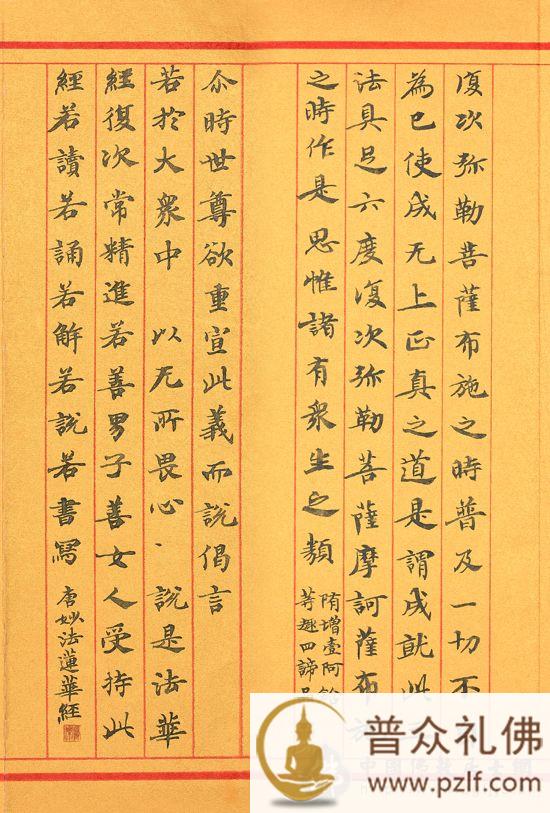 復次弥勒菩薩布施之時普及一切不
為已使成无上正真之道是謂成就此
法具足六度復次弥勒菩薩摩訶薩布
之時作是思惟諸有衆生之類
隋增壹阿
等趣四諦
尒時世尊欲重宣此義而說偈言
若於大衆中 以无所畏心、說是法華
經復次常精進若善男子善女人受持此
經若讀若誦若解若說若書寫 唐妙法蓮華經
普众礼佛
www.pzlf.com